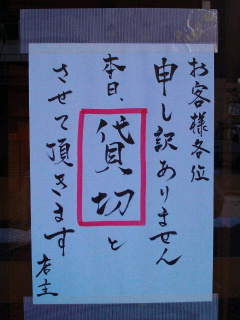 お客様各位
申し訳ありません
本日、貸切と
させて頂きます
店主